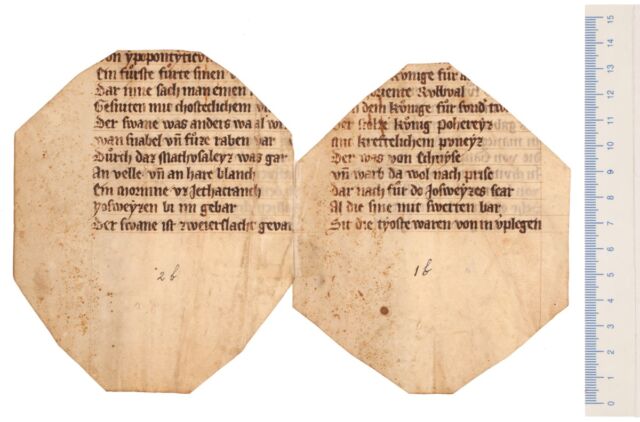 von ypopontyticu
Ein fůrste fůrte sinen
Dar inne sach man einen
Gesniten mit chosteclichem
Der swane was anders wa al
wan snabel vn̄ fůze raben var
Důrch daz Mathysaleyz was gar
An velle vn̄ an hare blanch
Ein mornine vz Jethacranch
Josweyzen bi im gebar
Der swane ist zweierslacht gevar
2 b
kůnige für
oriente
dem kůnige für
Der stoltz kůnig Pohereyz
mit kreftechlichem pvneyz
Der was von Schoyse
vn̄ warb da wol nach prise
dar nach für do Josweyzes scar
Al die sine mit swerten bar
Sit die tyoste waren von in vplegen
1 b
0 1 2 3 4 5 6 7 8 9 10 11 12 13 14 15